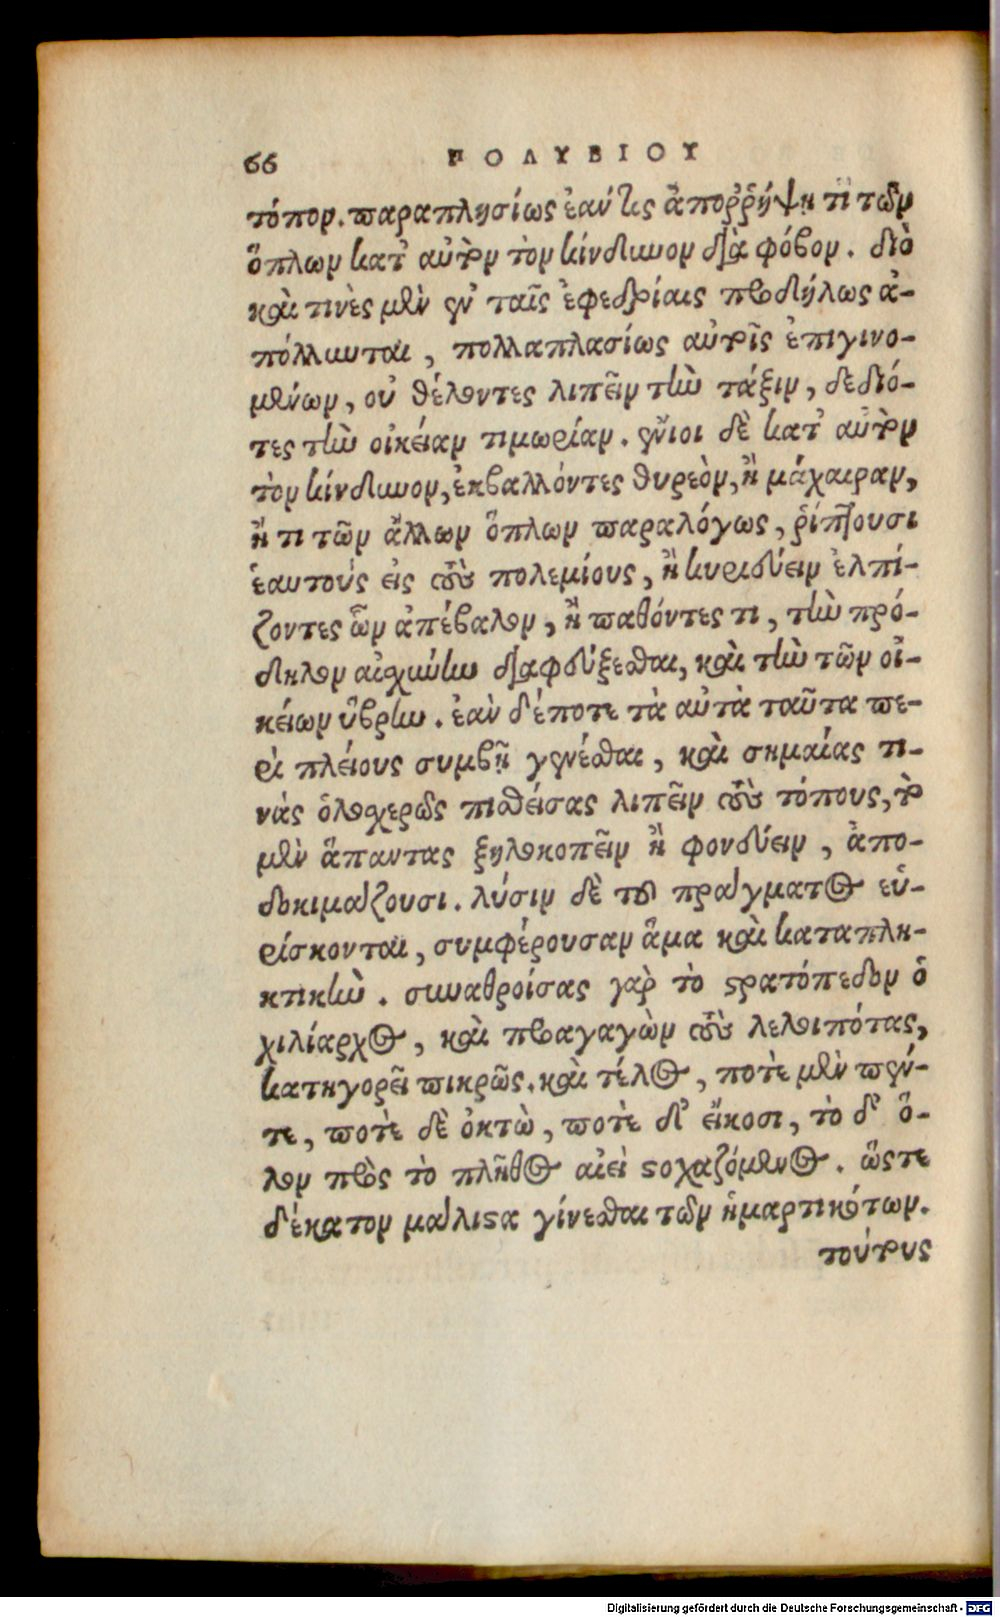 66 ΠΟΛΥΒΙΟΥ
τόπον. παραπλησίως ἐάν τις ἀποῤῥίψῃ τὶ τῶν
ὅπλων κατ᾽ αὐτὸν τὸν κίνδυνον διὰ φόβον. διὸ
καὶ τινὲς μὲν ἐν ταῖς ἐφεδρίαις προδήλως ἀ-
πόλλυνται, πολλαπλασίως αὐτοῖς ἐπιγινο-
μένων, οὐ θέλοντες λιπεῖν τὴν τάξιν, δεδιό-
τες τὴν οἰκείαν τιμωρίαν. ἔνιοι δὲ κατ᾽ αὐτὸν
τὸν κίνδυνον, ἐκβαλλόντες θυρεὸν, ἢ μάχαιραν,
ἤ τι τῶν ἄλλων ὅπλων παραλόγως, ῥίπτουσι
ἑαυτοὺς εἰς τοὺς πολεμίους, ἢ κυριεύειν ἐλπί-
ζοντες ὧν ἀπέβαλον, ἢ παθόντες τι, τὴν πρό-
δηλον αἰσχύνην διαφεύξεσθαι, καὶ τὴν τῶν οἰ-
κείων ὕβριν. ἐὰν δέποτε τὰ αὐτὰ ταῦτα πε-
ρὶ πλείους συμβῇ γενέσθαι, καὶ σημαίας τι-
νὰς ὁλοχερῶς πιεσθείσας λιπεῖν τοὺς τόπους, τὸ
μὲν ἅπαντας ξηλοκοπεῖν ἢ φονεύειν, ἀπο-
δοκιμάζουσι. λύσιν δὲ τοῦ πράγματος εὑ-
ρίσκονται, συμφέρουσαν ἅμα καὶ καταπλη-
κτικήν. συναθροίσας γὰρ τὸ στρατόπεδον ὁ
χιλίαρχος, καὶ προαγαγὼν τοὺς λελοιπότας,
κατηγορεῖ πικρῶς. καὶ τέλος, ποτὲ μὲν πέν-
τε, ποτὲ δὲ ὀκτὼ, ποτὲ δ᾽ εἴκοσι, τὸ δ᾽ ὅ-
λον πρὸς τὸ πλῆθος αἰεὶ στοχαζόμενος. ὥστε
δέκατον μάλιστα γίνεσθαι τῶν ἡμαρτικότων.
τούτους
Digitalisierung gefördert durch die Deutsche Forschungsgemeinschaft - DFG